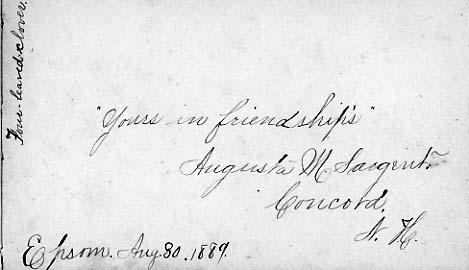 Four-leaved-clover.
"Yours in friendship's"
Augusta M Sargent.
Concord,
N. H.
Epsom. Aug. 30. 1889.